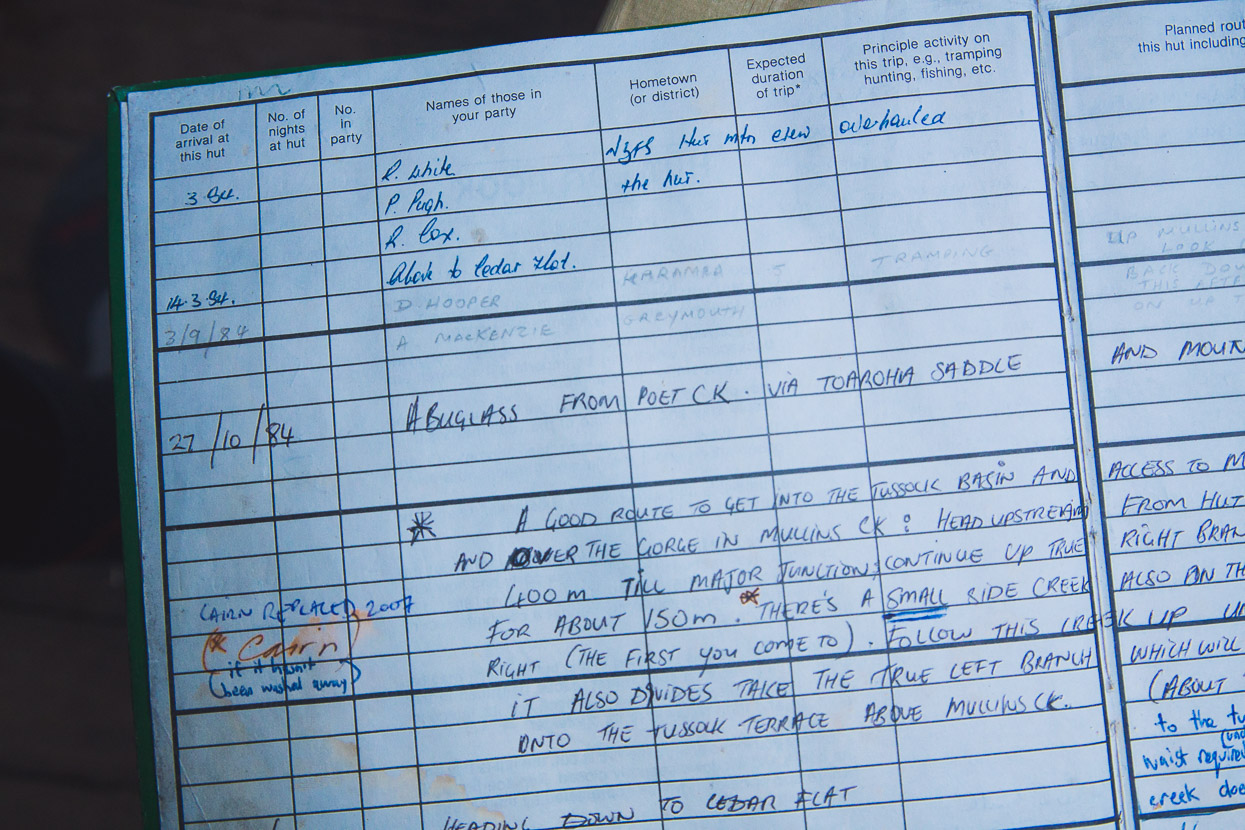 Date of arrival at this hut
No. of nights at hut
No. in party
Names of those in your party
Hometown (or district)
Expected duration of trip*
Principle activity on this trip, e.g., tramping hunting, fishing, etc.
Planned rout
this hut including
R. White NZFS Hut mtn crew overhauled
3 the hut.
P. Pugh.
R. Cox.
14.3.84. to Cedar Flat.
3/9/84 D. HOOPER KARAMEA 5 TRAMPING
A MACKENZIE GREYMOUTH
UP MULLINS
LOOK
BACK DOW
ON UP T
27/10/84 A BUGLASS FROM POET CK. VIA TOAROHA SADDLE
AND MOUN
* A GOOD ROUTE TO GET INTO THE TUSSOCK BASIN AND
AND OVER THE GORGE IN MULLINS CK: HEAD UPSTREAM
400M TILL MAJOR JUNCTION: CONTINUE UP TRUE
FOR ABOUT 150M. * THERE'S A SMALL SIDE CREEK
RIGHT (THE FIRST YOU COME TO). FOLLOW THIS CREEK UP
IT ALSO DIVIDES TAKE THE TRUE LEFT BRANCH
ONTO THE TUSSOCK TERRACE ABOVE MULLINS CK.
HEADING DOWN TO CEDAR FLAT
CAIRN REPLACED 2007
(* Cairn
(if it hasn't
been washed away)
ACCESS TO M
FROM HUT
RIGHT BRAN
ALSO ON TH
WHICH WILL
(ABOUT
to the tu
waist required
creek doe